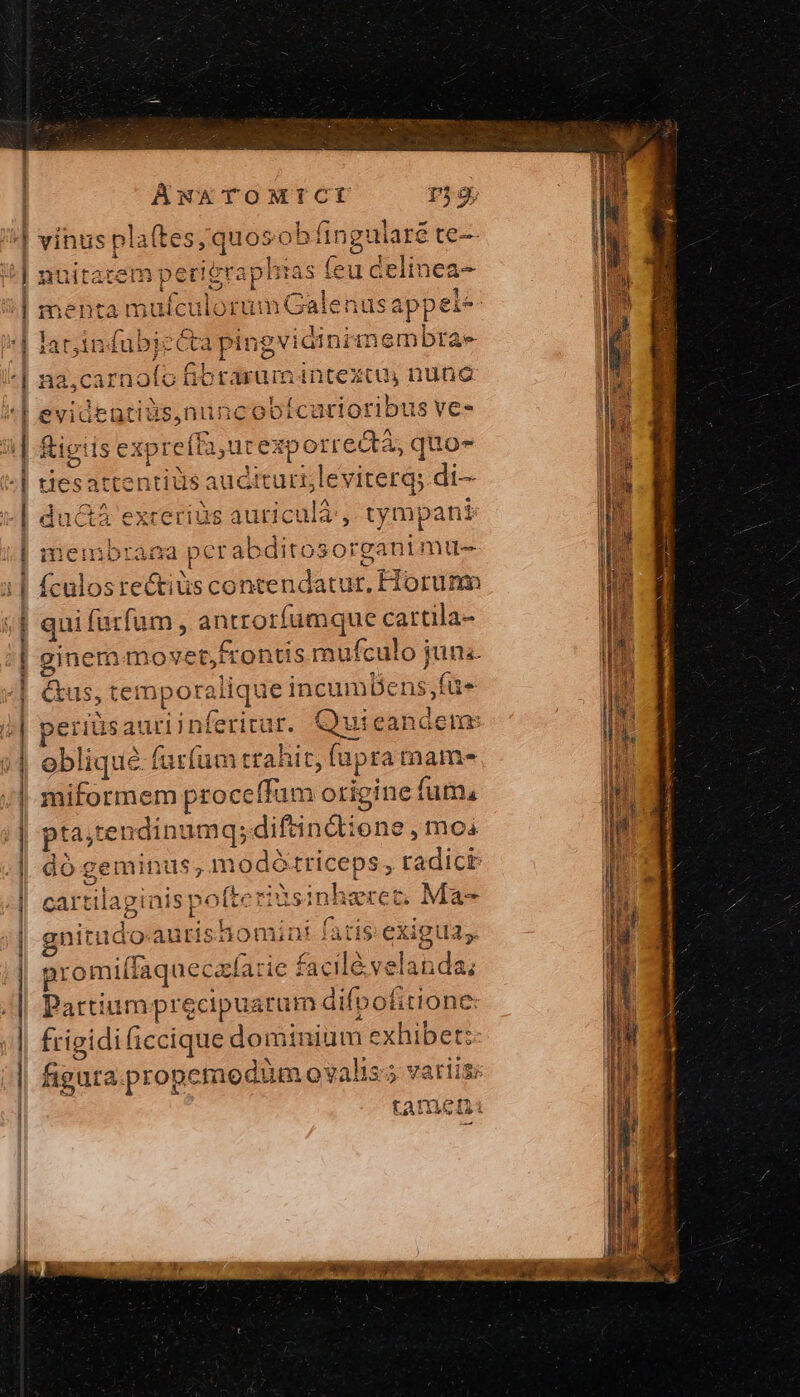 ANATOMICI
vinus plaſtes, quos ob ſingularē te-
nuitatem perigraphias ſeu delinea-
menta muſculorum Galenus appel-
lat, in ſubjecta pingvidini membra-
na, carnoſo fibrarum intextu, nunc
evidentiùs, nunc obſcurioribus ve-
ſtigiis expreſſa, ut exporrectâ, quo-
ties attentiùs auditur, leviterq; di-
ductâ exteriùs auriculâ, tympani
membrana per abditos organi mu-
ſculos rectiùs contendatur. Horum
qui ſurſum, antrorſumque cartila-
ginem movet, frontis muſculo jun-
ctus, temporalique incumbens, ſu-
periùs auri inferitur. Qui eandem
obliquè ſurſum trahit, ſupra mam-
miformem proceſſum origine ſum-
pta, tendinumq; diſtinctione, mo-
dò geminus, modò triceps, radici
cartilaginis poſteriùs inhæret. Ma-
gnitudo auris homini ſatis exigua,
promiſſaque cæſarie facilè velanda;
Partium precipuarum diſpoſitione
frigidi ſiccique dominium exhibet:
figura propemodùm ovalis; variis
tamen